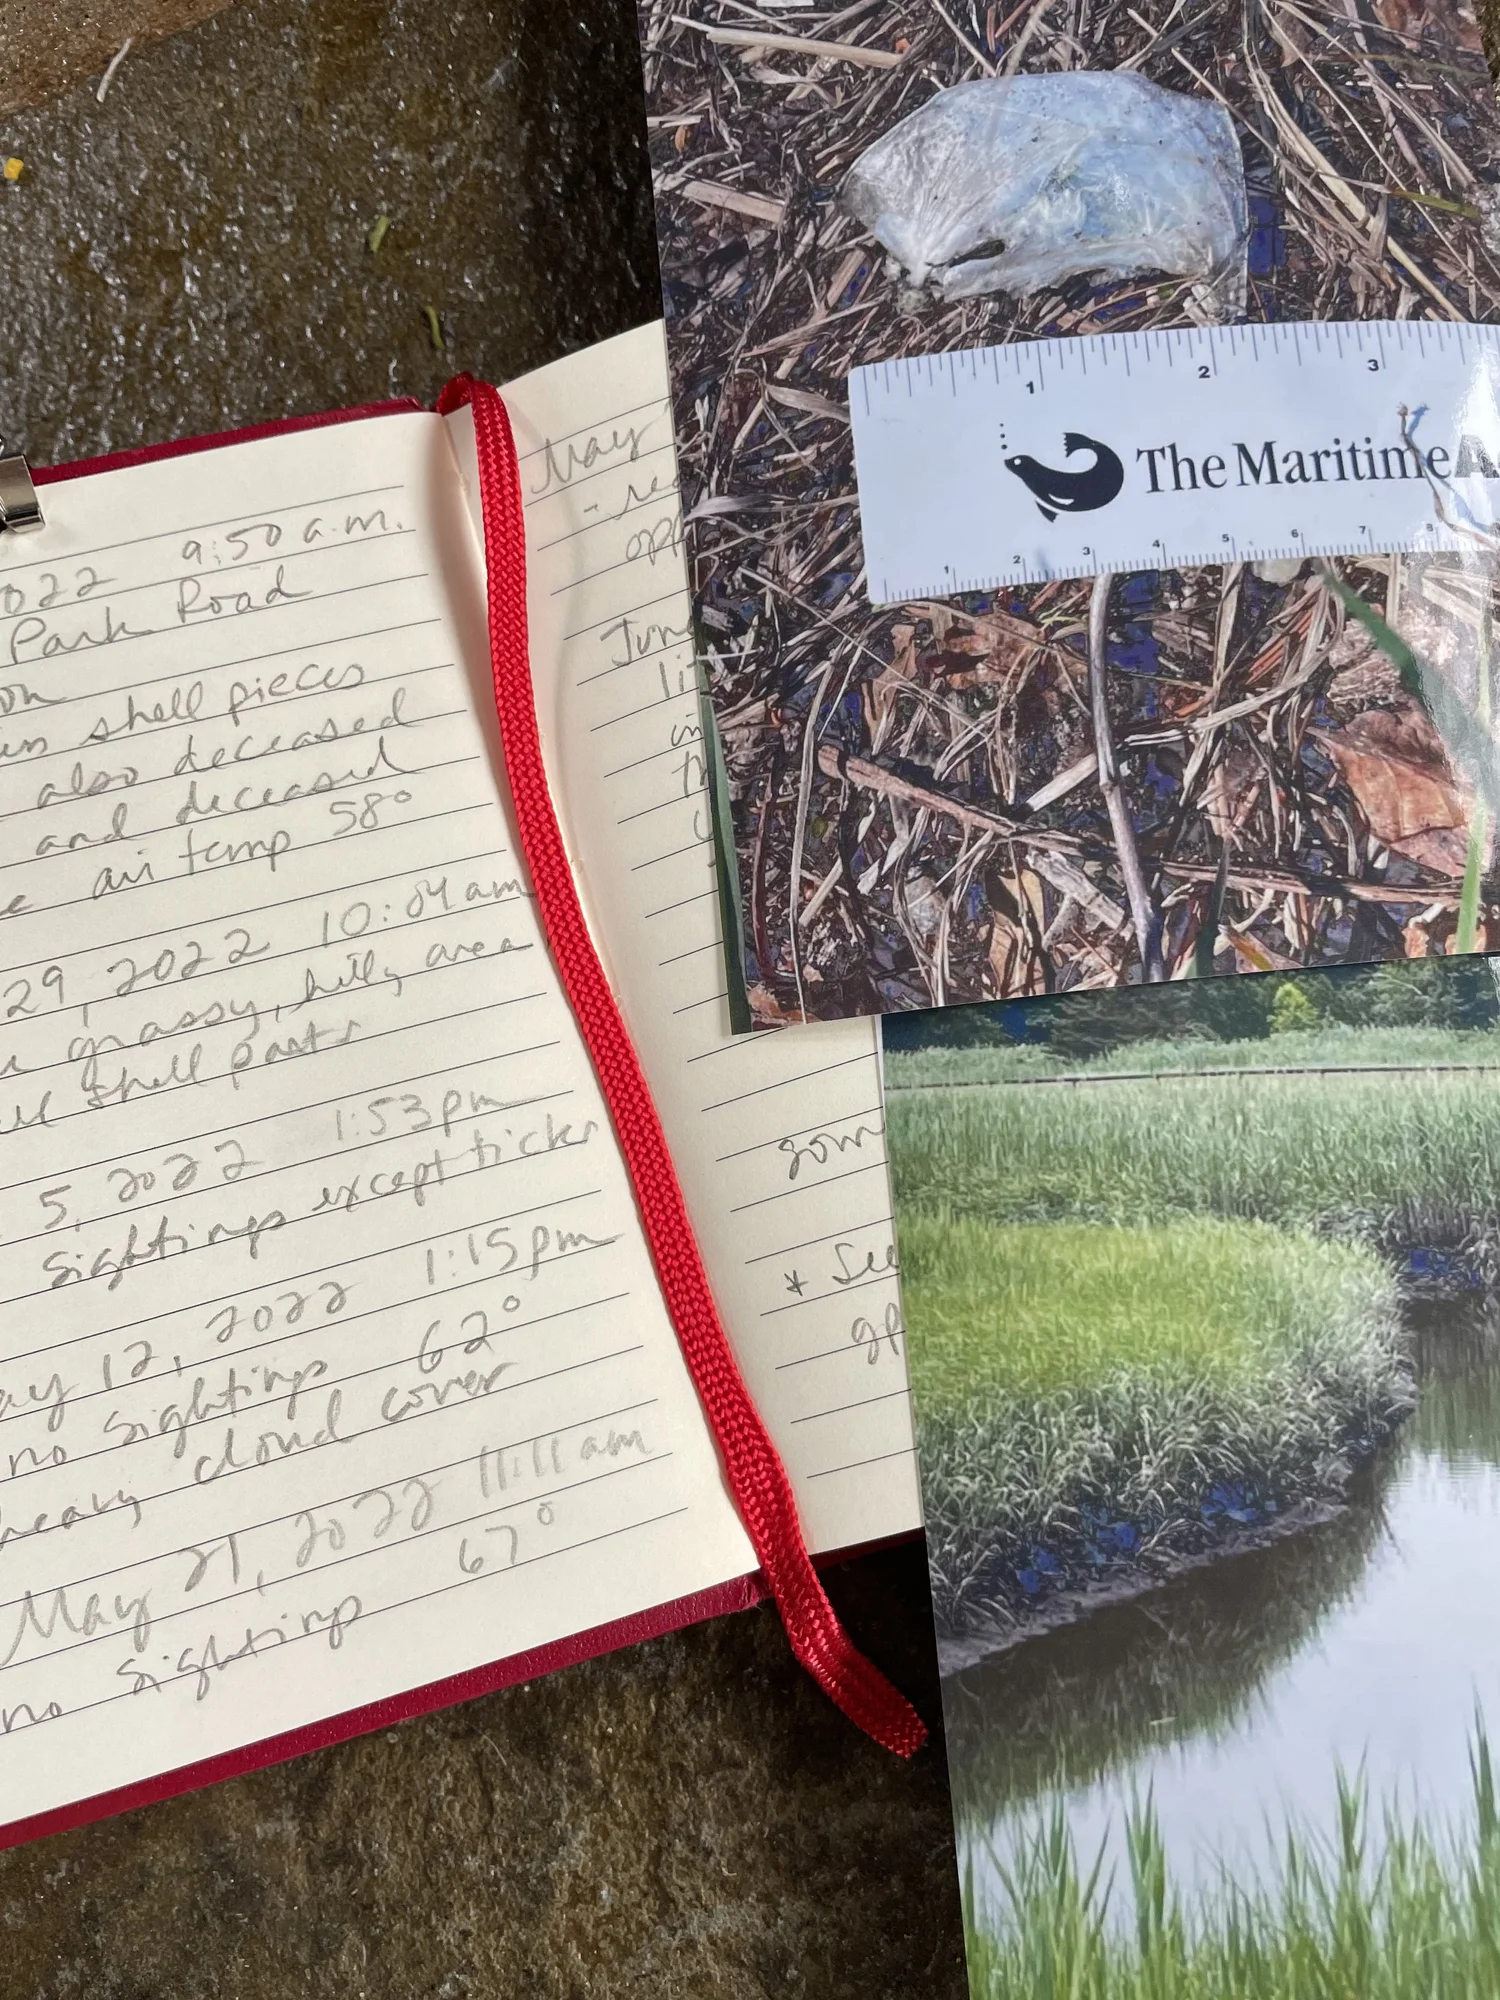 022 9:50 a.m.
Park Road
on
shell pieces
also deceased
and deceased
air temp 58°
29, 2022 10:04 am
grassy, hilly area
shell parts
5, 2022 1:53pm
sightings except ticks
ay 12, 2022 1:15pm
no sightings 62°
heavy cloud cover
May 21, 2022 11:11 am
no sightings 67°
May
- rec
opp
June
li
th
som
* See
gp
1 2 3
The Maritime A
1 2 3 4 5 6 7 8